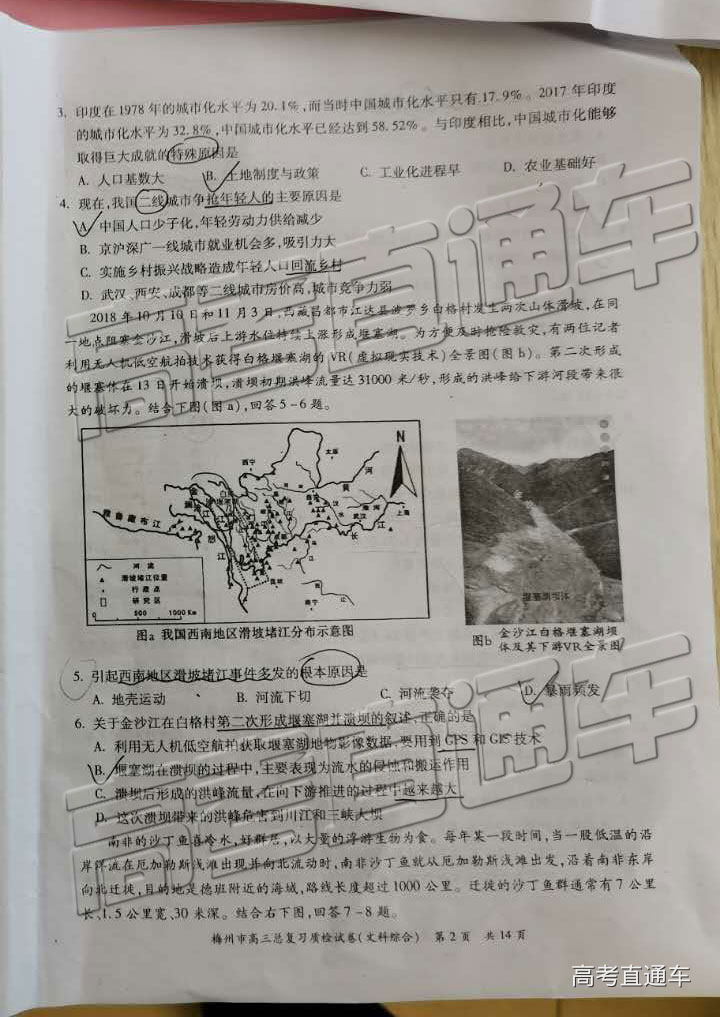 3. 印度在1978年的城市化水平为20.1%,而当时中国城市化水平只有17.9%。2017年印度
的城市化水平为32.8%,中国城市化水平已经达到58.52%。与印度相比,中国城市化能够
取得巨大成就的特殊原因是
A. 人口基数大 B. 土地制度与政策 C. 工业化进程早 D. 农业基础好
4. 现在,我国二线城市争抢年轻人的主要原因是
A. 中国人口少子化,年轻劳动力供给减少
B. 京沪深广一线城市就业机会多,吸引力大
C. 实施乡村振兴战略造成年轻人口回流乡村
D. 武汉、西安、成都等二线城市房价高,城市竞争力弱
2018年10月10日和11月3日,西藏昌都市江达县波罗乡白格村发生两次山体滑坡,在同
一地点阻塞金沙江,滑坡后上游水位持续上涨形成堰塞湖。为方便及时抢险救灾,有两位记者
利用无人机低空航拍技术获得白格堰塞湖的VR(虚拟现实技术)全景图(图b)。第二次形成
的堰塞体在13日开始溃坝,溃坝初期洪峰流量达31000米/秒,形成的洪峰给下游河段带来很
大的破坏力。结合下图(图a),回答5-6题。
N
西宁
太原
黄
河
上海
武汉
长
江
雅鲁藏布江
怒
江
昆明
南宁
河流
滑坡堵江位置
行政点
研究区
0 500 1000 Km
堰塞湖坝体
图a 我国西南地区滑坡堵江分布示意图
图b 金沙江白格堰塞湖坝
体及其下游VR全景图
5. 引起西南地区滑坡堵江事件多发的根本原因是
A. 地壳运动 B. 河流下切 C. 河流袭夺 D. 暴雨频发
6. 关于金沙江在白格村第二次形成堰塞湖并溃坝的叙述,正确的是
A. 利用无人机低空航拍获取堰塞湖地物影像数据,要用到GPS和GIS技术
B. 堰塞湖在溃坝的过程中,主要表现为流水的侵蚀和搬运作用
C. 溃坝后形成的洪峰流量,在向下游推进的过程中越来越大
D. 这次溃坝带来的洪峰危害到川江和三峡大坝
南非的沙丁鱼喜冷水,好群居,以大量的浮游生物为食。每年某一段时间,当一股低温的沿
岸洋流在厄加勒斯浅滩出现并向北流动时,南非沙丁鱼就从厄加勒斯浅滩出发,沿着南非东岸
向北迁徙,目的地是德班附近的海域,路线长度超过1000公里。迁徙的沙丁鱼群通常有7公里
长、1.5公里宽、30米深。结合右下图,回答7-8题。
梅州市高三总复习质检试卷(文科综合) 第2页 共14页
高考直通车
高考直通车
高考直通车